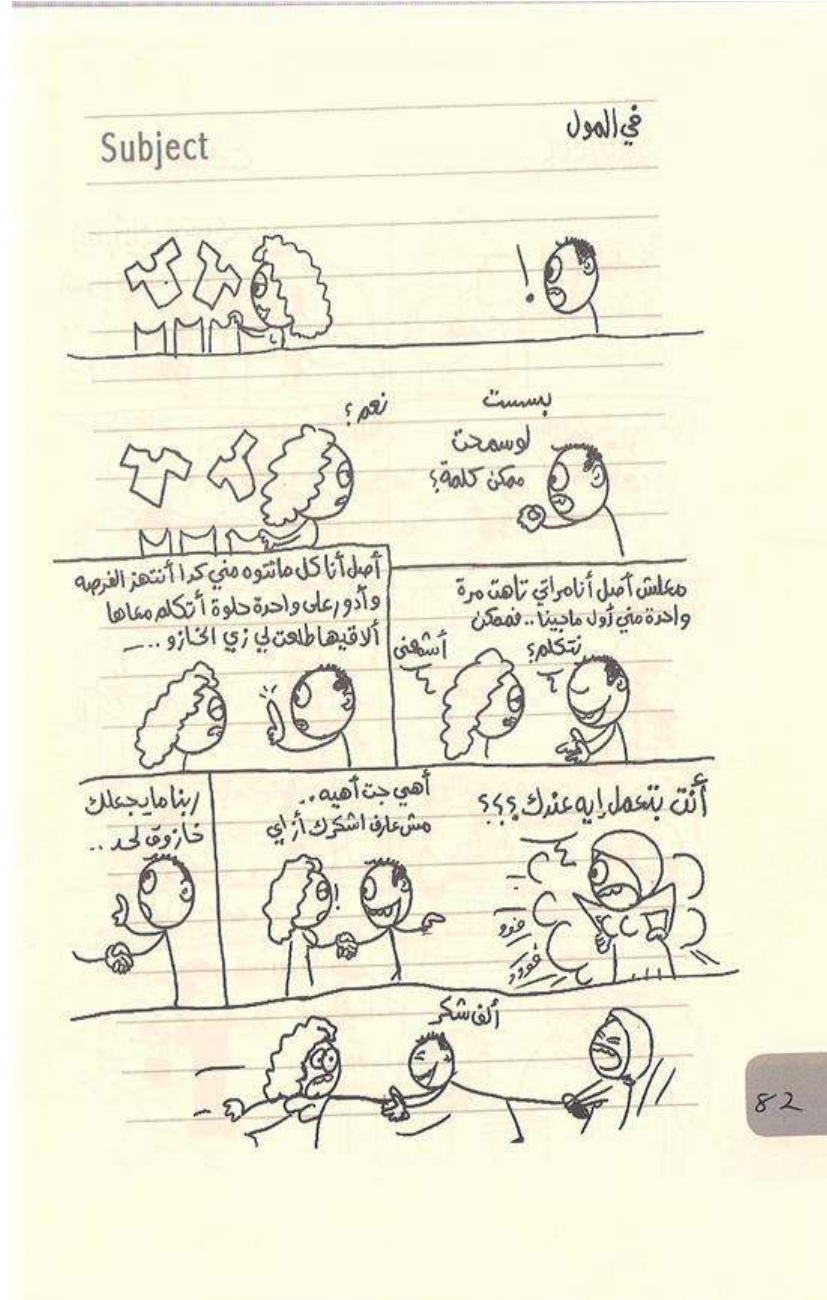 Subject
في المول
!
بسست
لوسمحت
ممكن كلمة؟
نعم؟
معلش أصل أنا مراتي تاهت مرة
واحدة مني أول ماجينا .. فممكن
نتكلم؟
أشمعنى
أصل أنا كل ماتتوه مني كدا أنتهز الفرصه
وأدور على واحدة حلوة أتكلم معاها
ألاقيها طلعت لي زي الخازو ....
أنت بتعمل إيه عندك ؟؟؟
فوو
فوور
أهي جت أهيه ..
مش عارف اشكرك أزاي
!
ربنا مايجعلك
خازوق لحد ..
ألف شكر
82